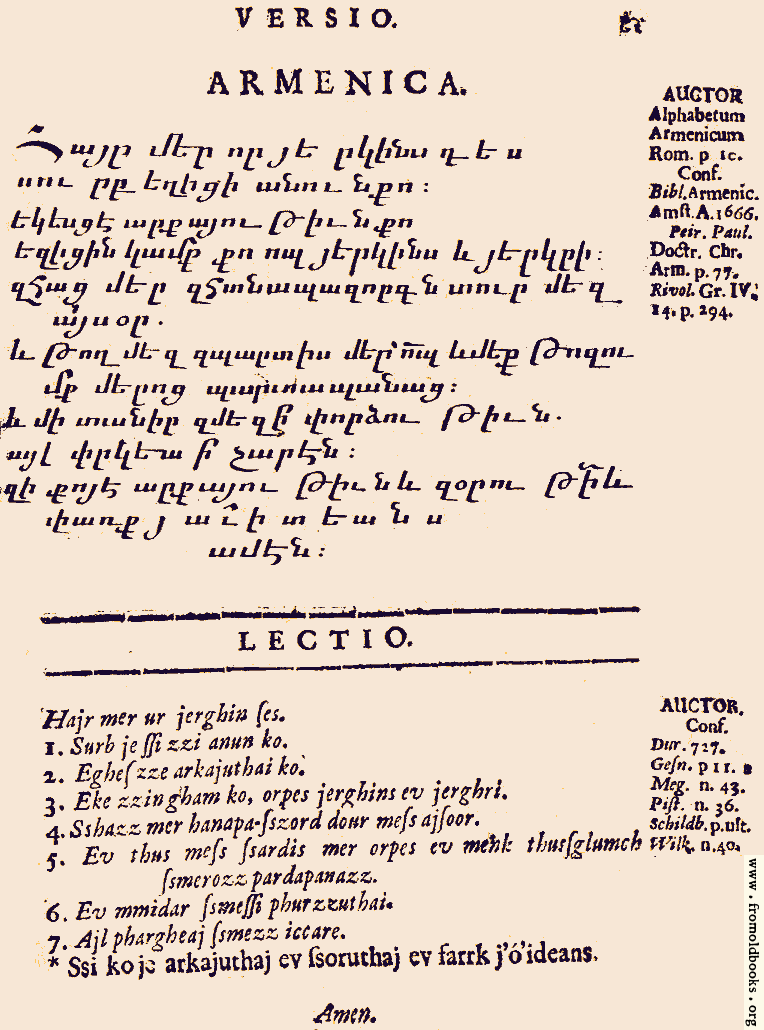 VERSIO.
ARMENICA.
Հայր մեր որ յե րկինս դ ե ս
սու րբ եղիցի անու ն քո :
եկեսցէ արք այու թիւն քո
եղիցին կամք քո որպ յերկինս և յերկրի :
զհաց մեր զհանապազորդ ն տուր մե զ
այսօր .
և թող մե զ զպարտիս մեր որպ և մեք թողու
մք մերոց պարտապանաց :
և մի տանիր զմեզ ի փորձու թիւն .
այլ փրկեա ի չարէն :
զի քոյէ արքայու թիւն և զօրու թի և
փառք յ ա ւ ի տ ե ա ն ս
ամէն :
AUCTOR
Alphabetum
Armenicum
Rom. p 1c.
Conf.
Bibl. Armenic.
Amſt. A. 1666.
Petr. Paul.
Doctr. Chr.
Arm. p. 77.
Rivol. Gr. IV.
14. p. 294.
LECTIO.
Hajr mer ur jerghin ſes.
1. Surb je ſſi zzi anun ko.
2. Egheſ zze arkajuthai ko.
3. Eke zzingham ko, orpes jerghins ev jerghri.
4. Sshazz mer hanapa-ſszord dour meſs ajſoor.
5. Ev thus meſs ſsardis mer orpes ev menk thusſglumch
ſsmerozz pardapanazz.
6. Ev mmidar ſsmeſſi phurzzuthai.
7. Ajl phargheaj ſsmezz iccare.
* Ssi ko je arkajuthaj ev ſsoruthaj ev farrk j'ó'ideans.
Amen.
AUCTOR.
Conf.
Dur. 727.
Geſn. p 11.
Meg. n. 43.
Piſt. n. 36.
Schildb. p. ult.
Wilk. n. 40.
www.fromoldbooks.org